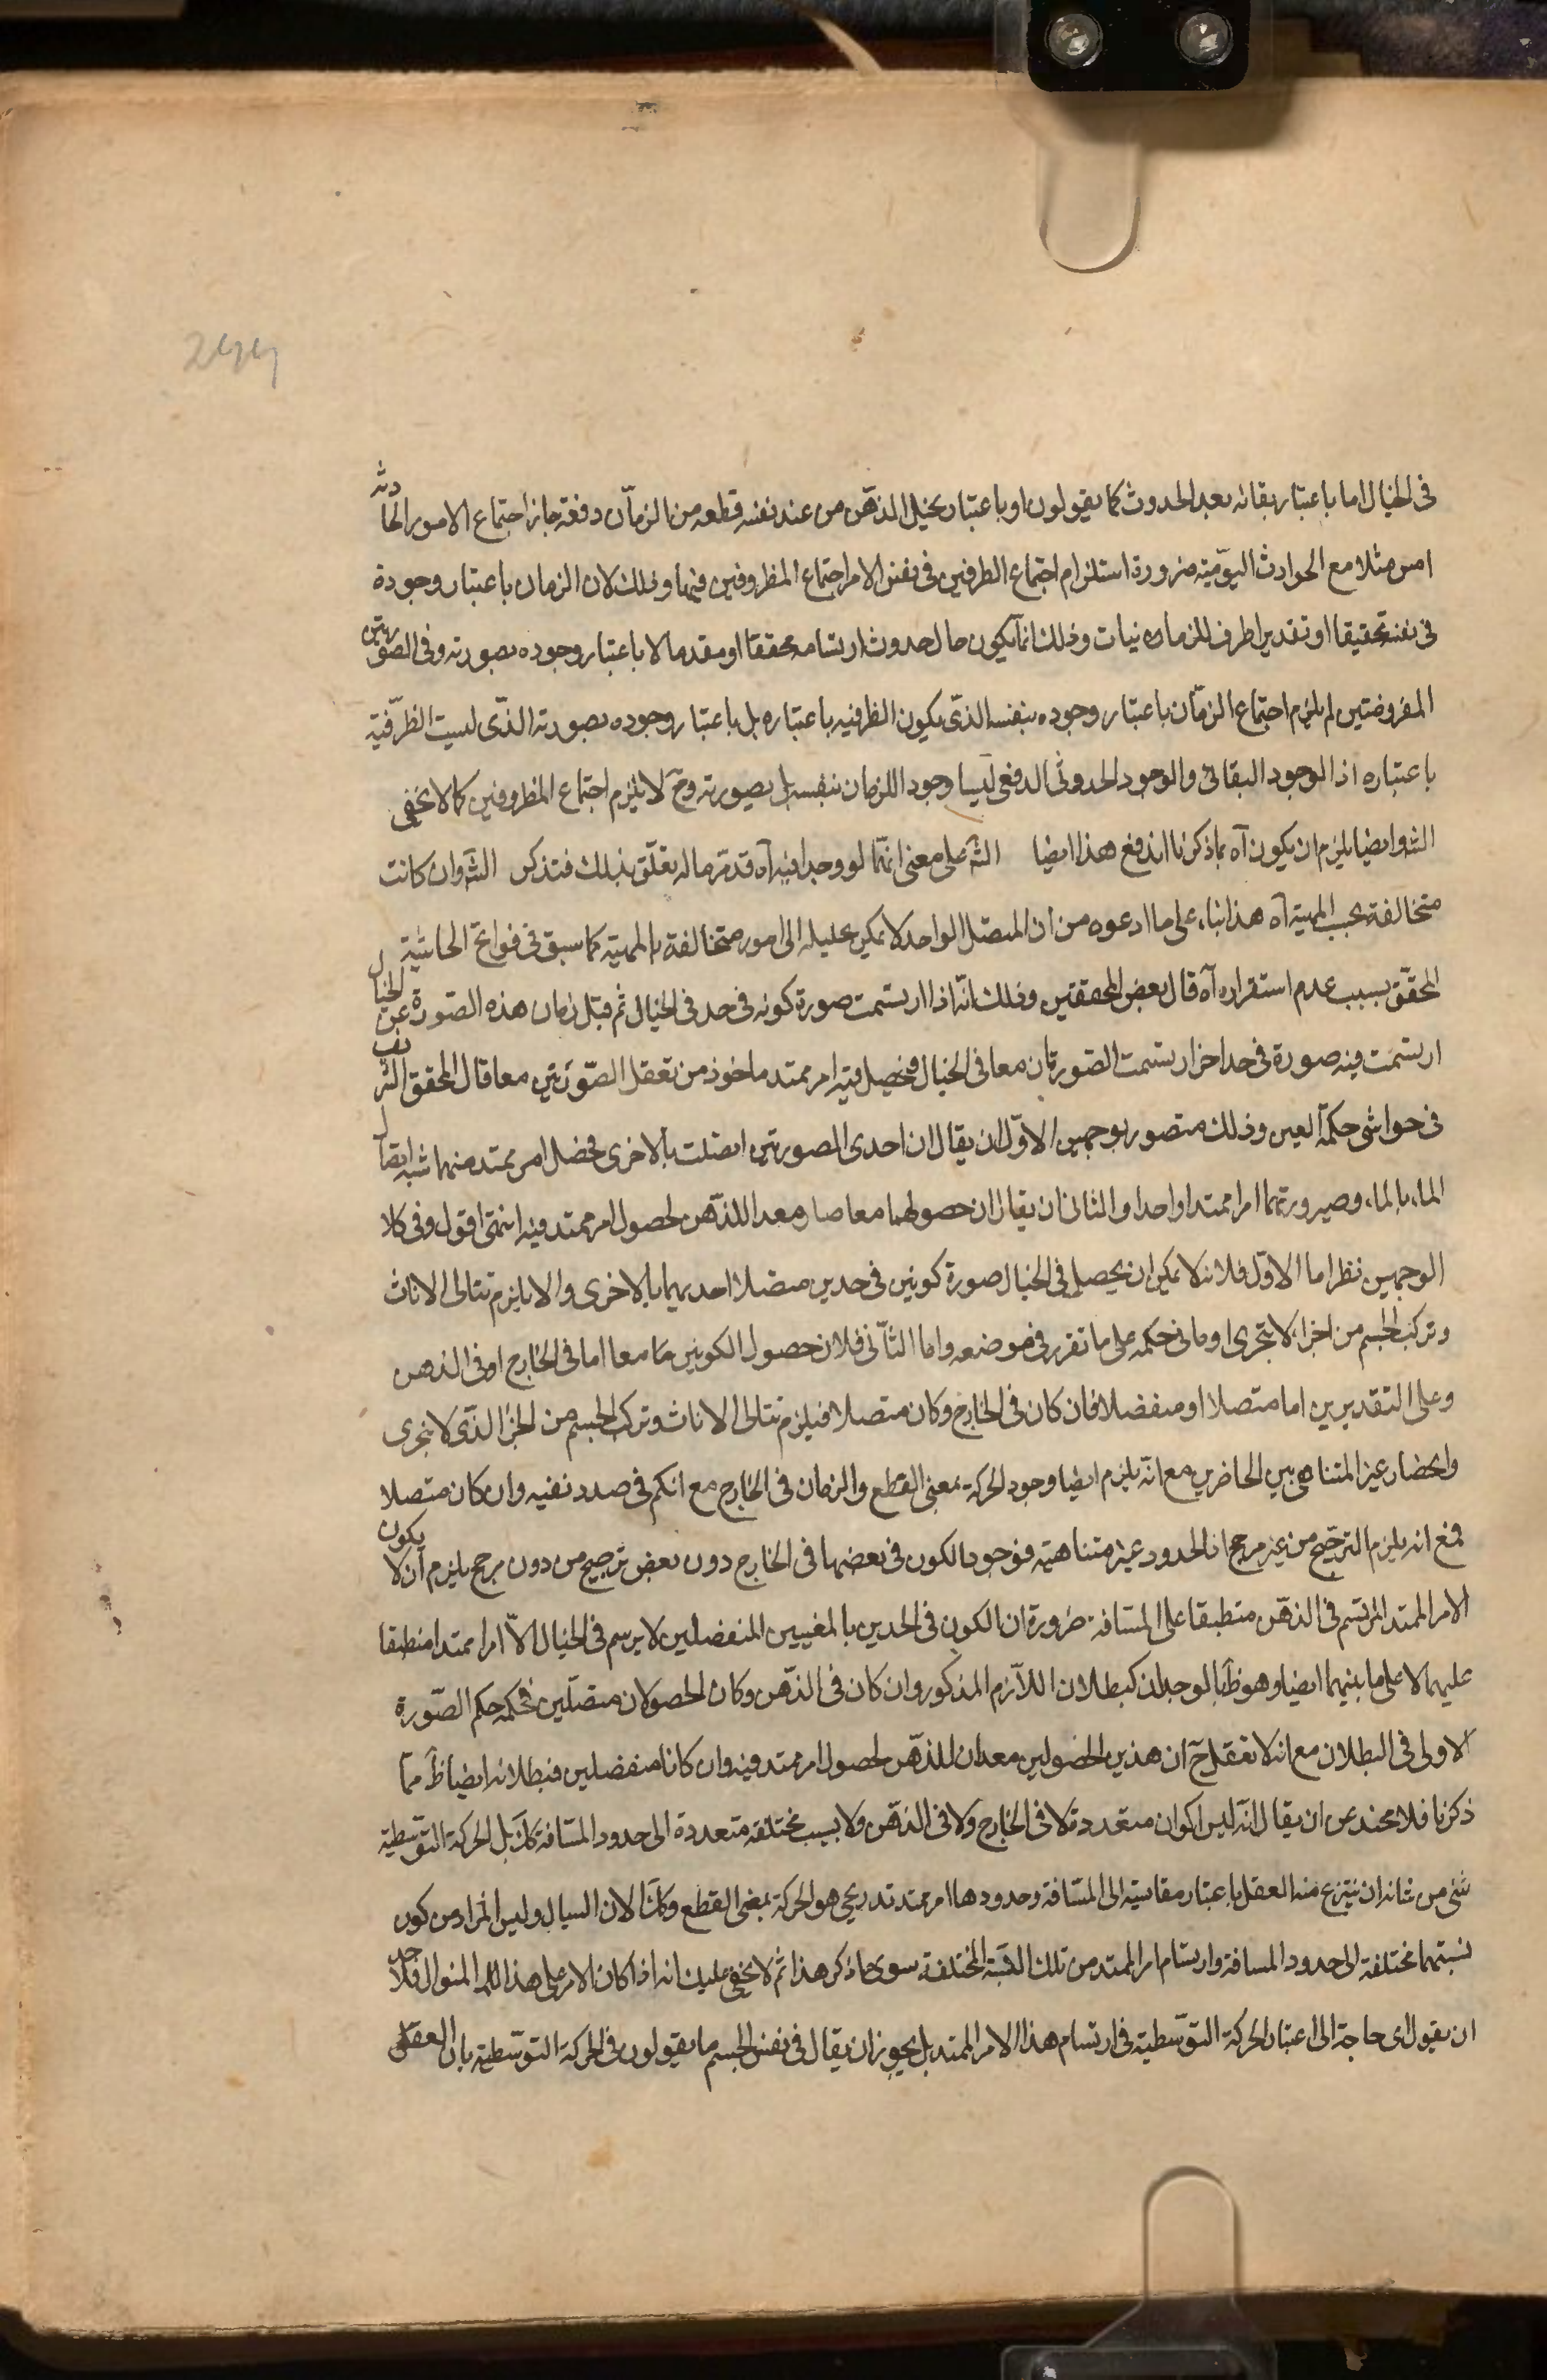 244
في الخيال اما باعتبار بقائه بعد الحدوث كما يقولون او باعتبار تخيل الذهن من عند نفسه قطعه من الزمان دفعة جاز اجتماع الامور الحادثه
امس مثلا مع الحوادث اليومية ضرورة استلزام اجتماع الظرفين في نفس الامر اجتماع المظروفين فيهما وذلك لان الزمان باعتبار وجوده
في نفسه تحقيقا او تقديرا ظرف للزمانيات وذلك انما يكون حال حدوث ارتسامه محققا او مقدما لا باعتبار وجوده بصورته وفي الصورتين
المفروضتين لم يلزم اجتماع الزمان باعتبار وجوده بنفسه الذي يكون الظرفيه باعتباره بل باعتبار وجوده بصورته الذي ليست الظرفية
باعتباره اذ الوجود البقائي والوجود الحدوثي الدفعي ليسا وجود اللزمان بنفسه بل بصورته وح لا يلزم اجتماع المظروفين كما لا يخفى
الش وايضا يلزم ان يكون آه بما ذكرنا اندفع هذا ايضا الش على معنى انهما لو وجدا فيه آه قد مر ماله تعلق بذلك فتذكر الش وان كانت
متخالفة بحسب المهية آه هذا بناء على ما ادعوه من ان المتصل الواحد لا يمكن تحليله الى امور متخالفة بالمهية كما سبق في فواتح الحاشية
المحقق بسبب عدم استقراره آه قال بعض المحققين وذلك انه اذا ارتسمت صورة كونه في حد في الخيال ثم قبل زمان هذه الصورة عن الخيال
ارتسمت فيه صورة في حد اخر ارتسمت الصورتان معا في الخيال فيحصل فيه امر ممتد ماخوذ من تعقل الصورتين معا قال المحقق الشريف
في حواشي حكمة العين وذلك متصور بوجهين الاول ان يقال ان احدى الصورتين اتصلت بالاخرى فحصل امر ممتد منهما شبه اتصال
الماء بالماء وصيرورتهما امرا ممتدا واحدا والثاني ان يقال ان حصولهما معا صار معدا للذهن لحصول امر ممتد فيه انتهى اقول وفي كلا
الوجهين نظر اما الاول فلانه لا يمكن ان يحصل في الخيال صورة كونين في حدين متصلا احديهما بالاخرى والا يلزم تتالى الانات
وتركب الجسم من اجزاء لا يتجرى او ما في حكمه على ما تقرر في موضعه واما الثاني فلان حصول الكونين معا اما في الخارج او في الذهن
وعلى التقديرين اما متصلا او منفصلا فان كان في الخارج وكان متصلا فيلزم تتالى الانات وتركب الجسم من الجزء الذي لا يتجرى
وانحصار غير المتناهي بين الحاصرين مع انه يلزم ايضا وجود الحركة بمعنى القطع والزمان في الخارج مع انكم في صدد نفيه وان كان متصلا
فمع انه يلزم الترجيح من غير مرجح اذ الحدود غير متناهية فوجود الكون في بعضها في الخارج دون بعض ترجيح من دون مرجح يلزم ان لا يكون
الامر الممتد المرتسم في الذهن منطبقا على المسافة ضرورة ان الكون في الحدين بالمعنيين المنفصلين لا يرسم في الخيال الا امرا ممتدا منطبقا
عليهما لا على ما بينهما ايضا وهو ظ بالوجدان كبطلان اللازم المذكور وان كان في الذهن وكان الحصولان متصلين فحكمه حكم الصورة
الاولى في البطلان مع انه لا تعقل ح ان هذين الحصولين معدان للذهن لحصول امر ممتد فيه وان كانا منفصلين فبطلانه ايضا ظ مما
ذكرنا فلا محيد عن ان يقال انه ليس اكوان متعددة لا في الخارج ولا في الذهن ولا نسب مختلفة متعددة الى حدود المسافة كك بل الحركة التوسطية
شئ من شانه ان ينتزع منه العقل باعتبار مقايسته الى المسافة وحدودها امر ممتد تدريجي هو الحركة بمعنى القطع وكك الان السيال وليس المراد من كون
نسبتهما مختلفة الى حدود المسافة وارتسام امر الممتد من تلك النسبة المختلفة سوى ما ذكر هذا ثم لا يخفى عليك انه اذا كان الامر على هذا المنوال فلاحد
ان يقول اى حاجة الى اعتبار الحركة التوسطية في ارتسام هذا الامر الممتد بل يجوز ان يقال في نفس الجسم ما يقولون في الحركة التوسطية بان العقل